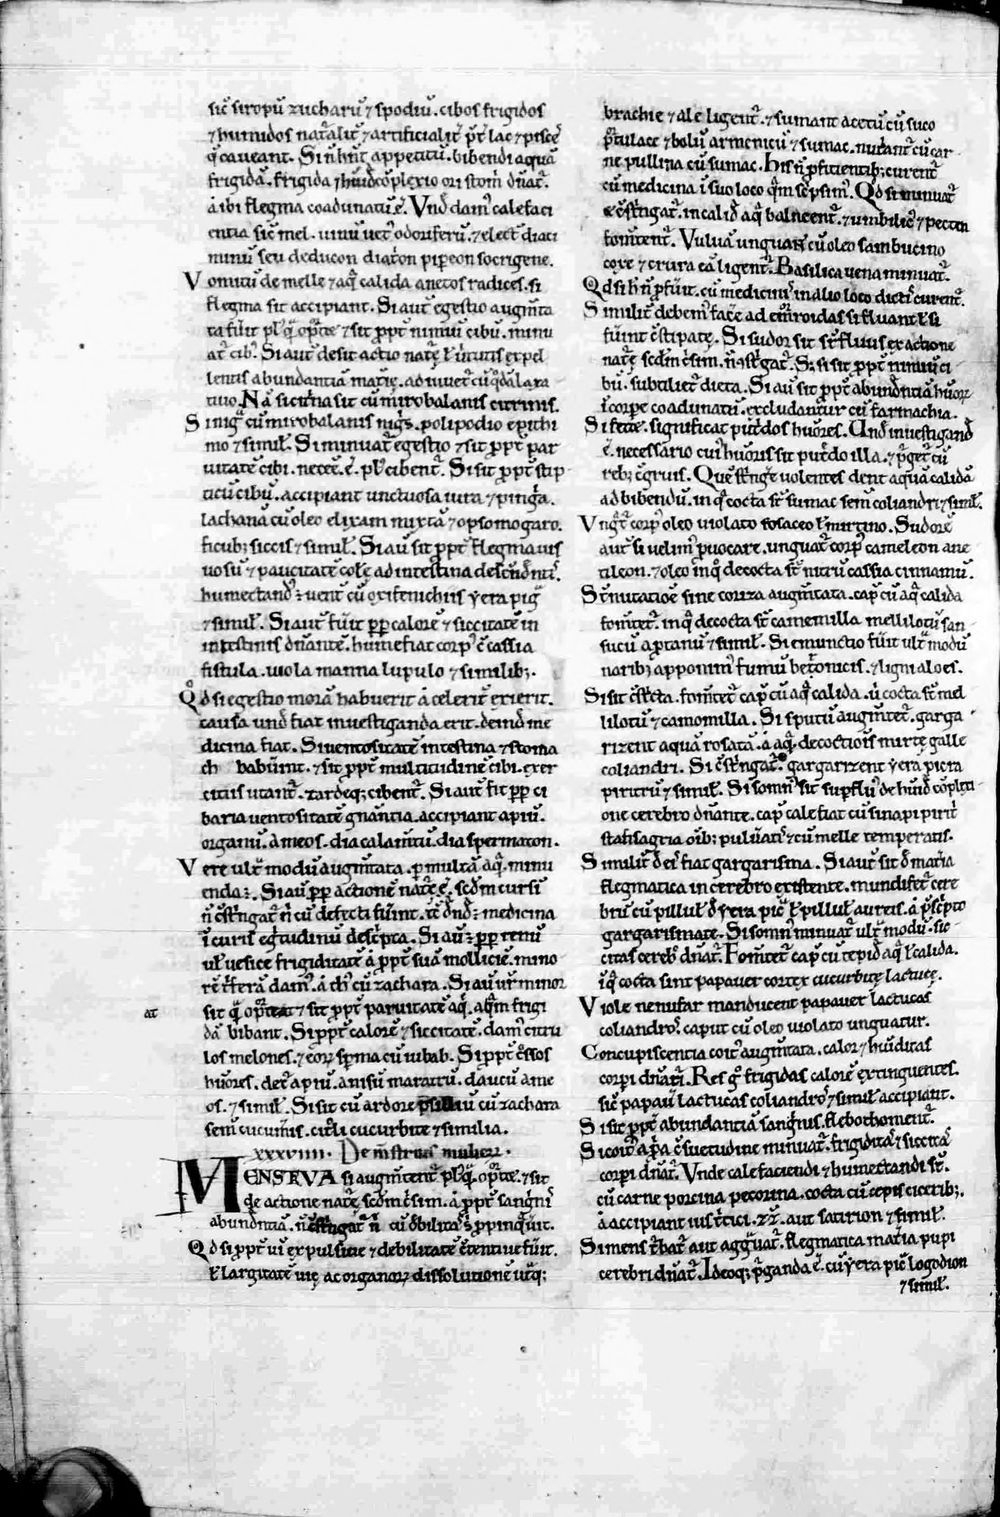 sic̄ siropū zucharū ⁊ spodiū. cibos frigidos
⁊ humidos nat͛alit͛ ⁊ artificialit͛ p͛t lac ⁊ pisce
q̄ caueant. Si n̄ hn̄t appetitū. bibendi aquā
frigidā. frigida
á ibi flegma coadunatū ē. Vnđ dam᷒ calefaci
entia sic̄ mel. uinū uet᷒ odoriferū. ⁊ elect̄ diaci
minū seu
Vomitū de melle ⁊ aq̄ calida anetos radices. si
flegma sit accipiant. Si aut̄ egestio augm̄ta
ta fūit pl᷒ q̄ oportet ⁊ sit ꝓpt͛ nimiū cibū. minu
at͛ cib᷒. Si aut̄ desit actio natę ł
lentis abundantiā matię. adiuuet͛ cū
tiuo. Nā si citrina sit cū mirobalanis citrinis.
Si nig͛ cū mirobalanis nig͛s. polipodio epithi
mo ⁊ simił. Si minuat͛ egestio ⁊ sit ꝓpt͛ par
uitatē cibi. necee. ē. pl᷒ cibent͛. Si sit ꝓpt͛ stip
ticū cibū. accipiant unctuosa iura ⁊ pingia.
lachana cū oleo elixam mixta ⁊ opsomogaro.
ficub; siccis ⁊ simił. Si aū sit ꝓpt͛ flegma uis
uosū ⁊ paucitatē colę ad intestina
humectand᷒
⁊ simił. Si aut̄ fūit ꝑꝑ calorē ⁊ siccitatē in
intestinis dn̄antē. hume fiat corp᷒ c̄ cassia
fistula. uiola manna lupulo ⁊ similib;.
Qđ si egestio morā habuerit á celerit͛ exierit.
causa unđ fiat inuestiganda erit. deinđ me
dicina fiat. Si uentositatē intestina ⁊ stoma
ch habūint. ⁊ sit ꝓpt͛ multitudinē cibi. exer
citiis utant͛. tardeq; cibent͛. Si aut̄ fit ꝑꝑ ci
baria uentositatē gn̄antia. accipiant apiū.
organū. ámeos. dia calamtū. dia spermaton.
Vere ult͛ modū augm̄tata. ꝑ multā aq̄. minu
enda. Si aū ꝑꝑ actionē natę ē. scđm cursū
medicina
ī curis egtudinū desc͛pta. Si aū ꝑꝑ renū
ul̄ uesice frigiditatē á ꝓpt͛ suā molliciē. mino
rē
sit q̄ oportet ⁊ sit ꝓpt͛ paruitatē aq̄. aq̄m frigi
dā bibant. Si ꝓpt͛ calorē ⁊ siccitatē. dam᷒ citru
los melones. ⁊ eoꝝ spma cū iubab. Si ꝓpt͛ c͛ssos
hūores. det͛ apiū. anisū maratrū. daucū ame
os. ⁊ simił. Si sit cū ardore psilliū cū zachara
sem̄ cucum̄is. cit͛li cucurbite ⁊ similia.
at
xxxviiii. De mn̄struis mulieꝝ.
MENSTRVA si augm̄tent͛ pl᷒ q̄ oportet. ⁊ sit
de actione natę scđm c͛sim. á ꝓpt͛ sangn̄i
abundn̄tiā. n̄ c̄st͛ngat͛ n̄ cū đbilitat͛
Qđ si ꝓpt͛ ui expulsiue ⁊ debilitatē ꝯtentiue fūit.
ł largitatē uię ac organoꝝ dissolutionē ut͛q;
brachie ⁊ ale ligent͛. ⁊ sumant acetū cū suco
p͛tulace ⁊ bolū armenicū ⁊ sumac. nut͛ant͛ cū car
ne pullina cū sumac. His n̄ ꝓficientib; curent͛
cū medicina ī suo loco q̄m sc͛psim᷒. Qđ si minuat͛
⁊ c̄st͛ngat͛. in caliđ aq̄ balneent͛. ⁊ umbilic᷒ ⁊ pecten
fom̄tent͛. Vuluā unguant cū oleo sambucino
coxe ⁊ crura eā ligent͛. Basilica uena minuat͛.
Qđ si h̄ n̄ ꝓfūit. cū medicin᷒ in alio loco dictis curent͛.
Similit͛ debem᷒ face ad emoroidas si fluant ł si
fūint c̄stipatę. Si sudor sit sup͛fluus ex actione
natę scđm c͛sim. n̄ st͛gat͛. S; si sit ꝓpt͛ nimiū ci
bū. subtiliet͛ dieta. Si aū sit ꝓpt͛ abundn̄tiā hūoꝝ
ī corpe coadunatū. excludantur cū farmachia.
Si fetet. significat put͛dos hūores. Unđ inuestiganđ
ē. necessario cui᷒ hūoris sit put͛do illa. ⁊ purget͛ cū
reb; c̄gruis. Que st͛nge uolentes dent aquā calidā
ad bibendū. in q̄ cocta st̄ sumac sem̄ coliandri ⁊ simił.
Vngt͛ corp᷒ oleo uiolato rosaceo ł mirtino. Sudorē
aut̄ si uelim᷒ ꝓuocare. unguat͛ corp᷒ cameleon ane
tileon. ⁊ oleo inq̄ decocta st̄ nitrū cassia cinnamū.
St͛nutatioē sine coriza augm̄tata. cap᷒ cū aq̄ calida
fom̄tet͛. in q̄ decocta st̄ camemilla mellilotū san
sucū aprtanū ⁊ simił. Si emunctio fūit ult͛ modū
narib; apponim᷒ fumū betonicis. ⁊ ligni aloes.
Si sit c̄st͛cta. fom̄tet͛ cap᷒ cū aq̄ calida. ū cocta st̄ mel
lilotū ⁊ camomilla. Si sputū augm̄tet͛. garga
rizent aquā rosatā. á aq̄. decoctiois mirte galle
coliandri. Si c̄st͛ngat͛. gargarizent yera picra
piritrū ⁊ simił. Si somn᷒ sit supflu᷒ de huiđ cōplexi
one cerebro dn̄ante. cap᷒ calefiat cū sinapi pipiri
stafisagria oīb; puluat͛ ⁊ cū melle temperatis.
Similit͛ đ ei᷒ fiat gargarisma. Si aut̄ sit đ matia
flegmatica in cerebro existente. mundifet͛ cere
brū cū pillulł đ yera pic͛ ł pillulł aureis. á p͛sc͛pto
gargarismate. Si somn᷒ minuat͛ ult͛ modū. sic
citas cereb᷒ dn̄at͛. Fom̄tet͛ cap᷒ cū tepiđ aq̄ ł calida.
ī q̄ cocta sint papauer cortex cucurbitę lactuce.
Viole nenufar manducent papauer lactucas
coliandrꝰ. caput cū oleo uiolato unguatur.
Concupiscentia coit᷒ augm̄tata. calor ⁊ hūiditas
corpi dn̄at͛. Res g͛ frigidas calorē extinguentes.
sic̄ papaū lactucas coliandrꝰ ⁊ simił accipiant.
Si sit ꝓpt͛ abundantiā sanguis. flebothoment͛.
Si coit᷒ á p͛a c̄suetudine minuat͛. frigiditas ⁊ siccitas
corpi dn̄at͛. Vnde calefaciendi ⁊ humectandi st̄.
cū carne porcina pecorina. cocta cū cepis cicerib;.
á accipiant ius t͛tici. aut satirion ⁊ simił.
Si mens t͛bat͛ aut agg͛uat͛. flegmatica matia pupi
cerebri dn̄at͛. Ideoq; p͛ganda ē. cū yera pic͛ logodion
⁊ simił.